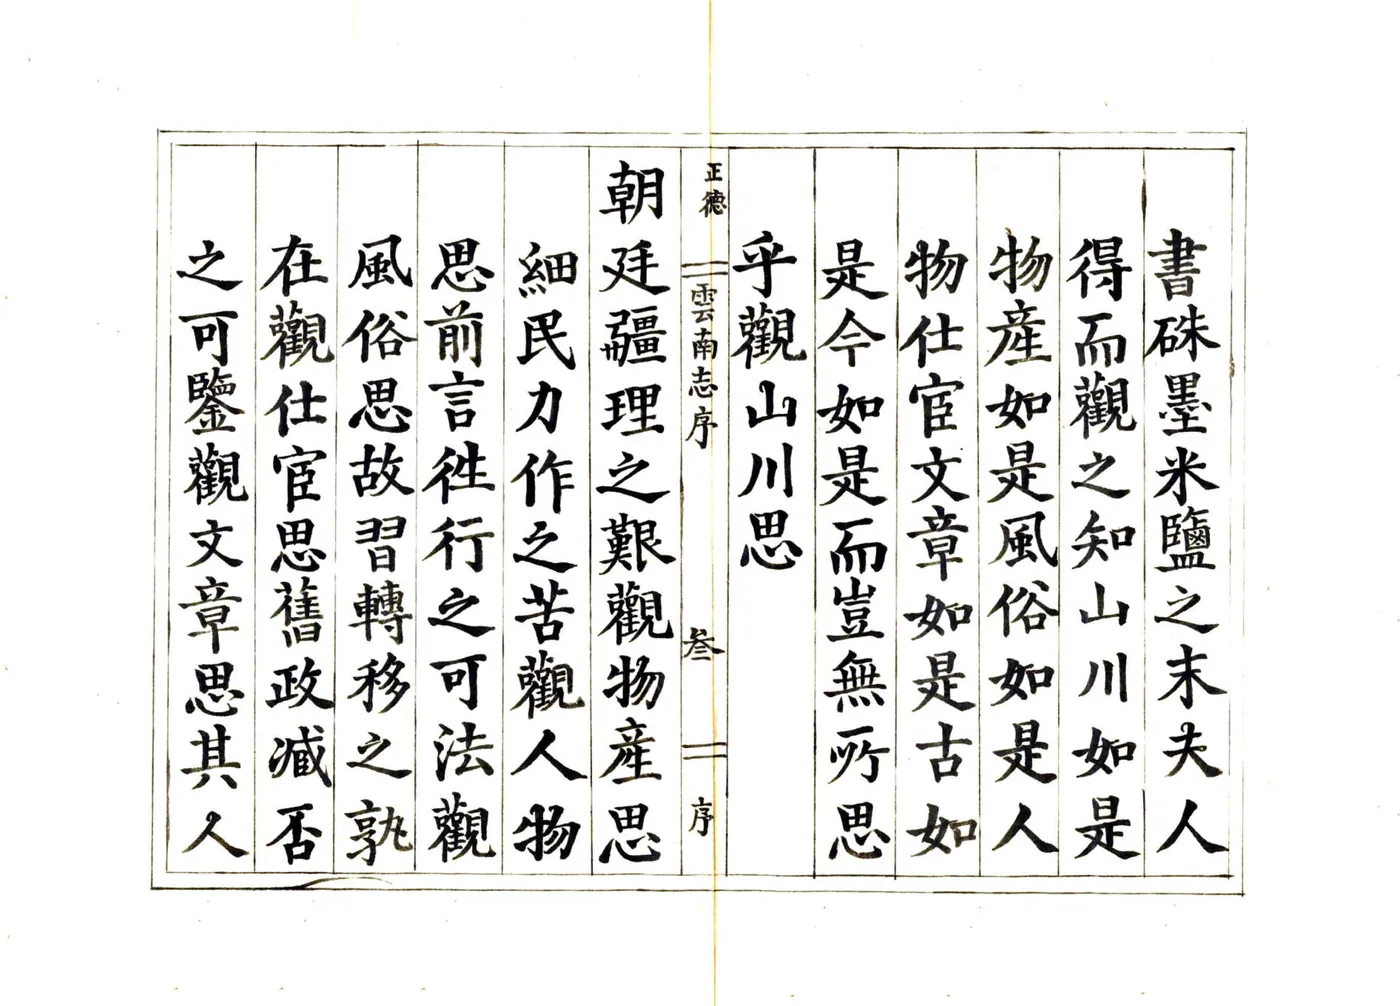 書硃墨米鹽之末夫人
得而觀之知山川如是
物産如是風俗如是人
物仕宦文章如是古如
是今如是而豈無所思
乎觀山川思
正德
雲南志序
叄
序
朝廷疆理之艱觀物産思
細民力作之苦觀人物
思前言徃行之可法觀
風俗思故習轉移之孰
在觀仕宦思舊政臧否
之可鑒觀文章思其人